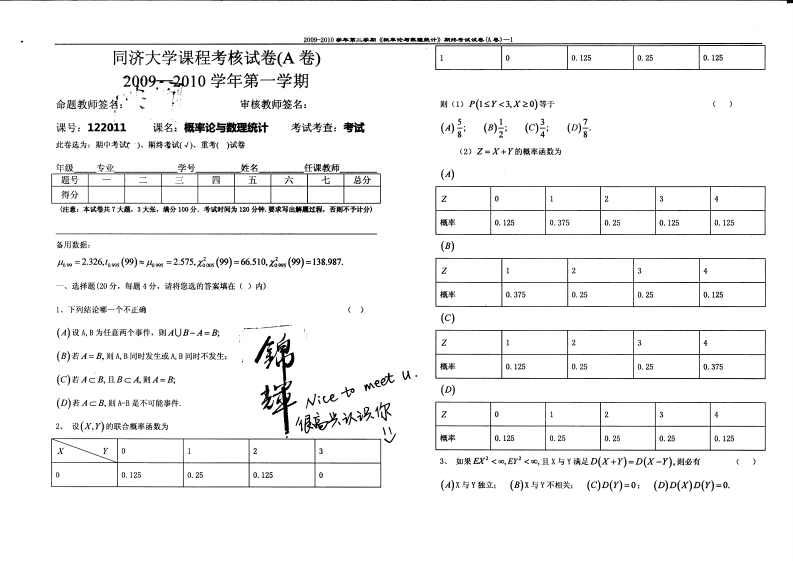 2009-2010 学年第二学期《概率论与数理统计》期终考试试卷(A 卷)—1
同济大学课程考核试卷(A 卷)
2009—2010 学年第一学期
命题教师签名: 审核教师签名:
课号: 122011 课名: 概率论与数理统计 考试考查: 考试
此卷选为: 期中考试( )、期终考试(√)、重考( )试卷
年级 专业 学号 姓名 任课教师
题号 一 二 三 四 五 六 七 总分
得分
(注意: 本试卷共 7 大题, 3 大张, 满分 100 分. 考试时间为 120 分钟. 要求写出解题过程, 否则不予计分)
备用数据:
μ0.99 = 2.326, t0.995 (99) ≈ μ0.995 = 2.575, χ²0.005 (99) = 66.510, χ²0.995 (99) = 138.987.
一、选择题(20 分, 每题 4 分, 请将您选的答案填在 ( ) 内)
1、下列结论哪一个不正确 ( )
(A) 设 A,B 为任意两个事件, 则 A∪B−A=B;
(B) 若 A=B, 则 A,B 同时发生或 A,B 同时不发生;
(C) 若 A⊂B, 且 B⊂A, 则 A=B;
(D) 若 A⊂B, 则 A-B 是不可能事件.
錦輝
Nice to meet u.
很高兴认识你
2、 设 (X,Y) 的联合概率函数为
X Y 0 1 2 3
0 0.125 0.25 0.125 0
1 0 0.125 0.25 0.125
则 (1) P(1≤Y<3, X≥0) 等于 ( )
(A) 5/8; (B) 1/2; (C) 3/4; (D) 7/8.
(2) Z=X+Y 的概率函数为
(A)
Z 0 1 2 3 4
概率 0.125 0.375 0.25 0.125 0.125
(B)
Z 1 2 3 4
概率 0.375 0.25 0.25 0.125
(C)
Z 1 2 3 4
概率 0.125 0.25 0.25 0.375
(D)
Z 0 1 2 3 4
概率 0.125 0.25 0.25 0.25 0.125
3、 如果 EX²<∞, EY²<∞, 且 X 与 Y 满足 D(X+Y)=D(X−Y), 则必有 ( )
(A) X 与 Y 独立; (B) X 与 Y 不相关; (C) D(Y)=0; (D) D(X)D(Y)=0.